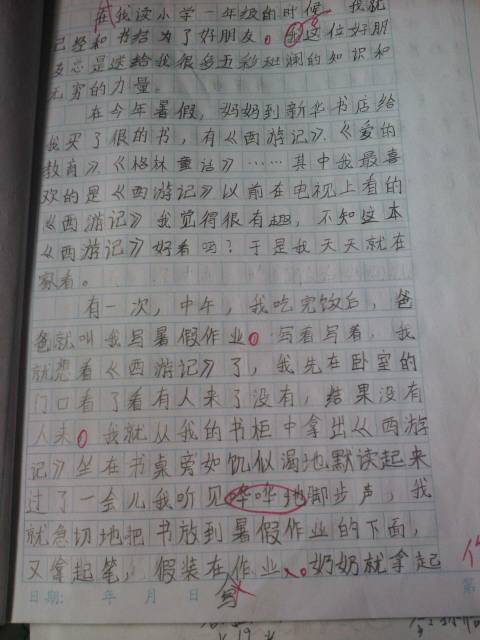 在我读小学一年级的时候，我就
已经和书结为了好朋友。我这位好朋
友总是送给我很多五彩斑斓的知识和
无穷的力量。
在今年暑假，妈妈到新华书店给
我买了很的书，有《西游记》、《爱的
教育》、《格林童话》……其中我最喜
欢的是《西游记》以前在电视上看的
《西游记》我觉得很有趣，不知这本
《西游记》好看吗？于是我天天就在
家看。
有一次，中午，我吃完饭后，爸
爸就叫我写暑假作业。写着写着，我
就想看《西游记》了，我先在卧室的
门口看了看有人来了没有，结果没有
人来。我就从我的书柜中拿出《西游
记》坐在书桌旁如饥似渴地默读起来
过了一会儿我听见哗哗地脚步声，我
就急切地把书放到暑假作业的下面，
又拿起笔，假装在作业。奶奶就拿起
写
日期： 年 月 日
第